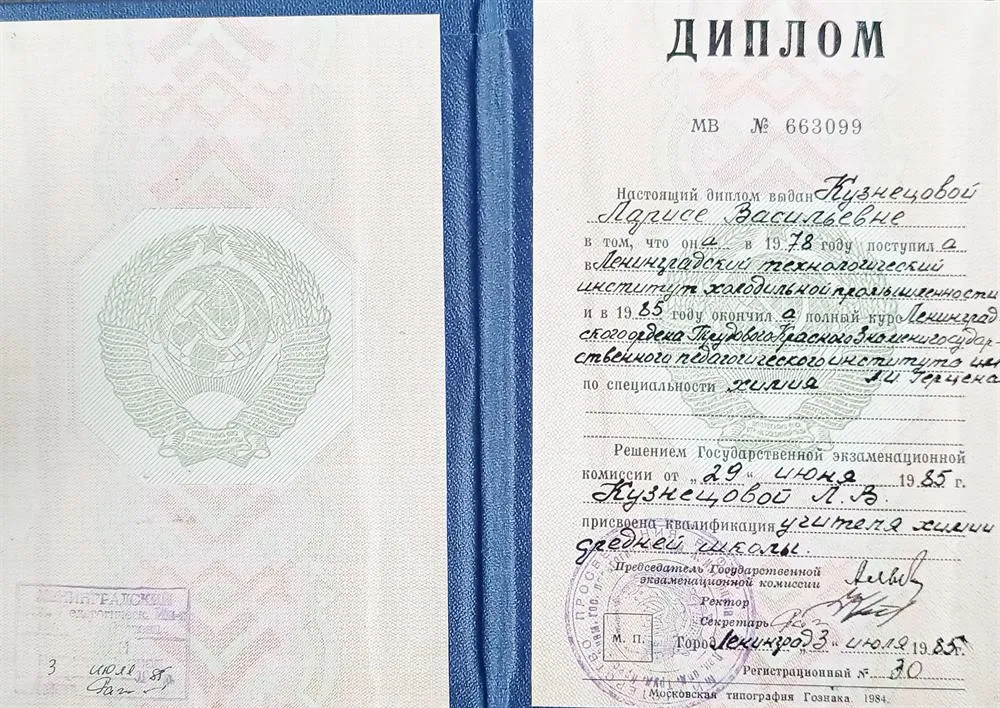 ЛЕНИНГРАДСКИЙ
3 июля 85
ДИПЛОМ
МВ № 663099
Настоящий диплом выдан Кузнецовой
Ларисе Васильевне
в том, что она в 1978 году поступила
в Ленинградский технологический
институт холодильной промышленности
и в 1985 году окончила полный курс Ленинград-
ского ордена Трудового Красного Знамени государ-
ственного педагогического института им
по специальности химия А И Герцена
Решением Государственной экзаменационной
комиссии от „29“ июня 1985 г.
Кузнецовой Л. В.
присвоена квалификация учителя химии
средней школы.
Председатель Государственной
экзаменационной комиссии
Ректор
Секретарь
М. П.
Город Ленинград „3“ июля 1985 г.
Регистрационный № 30
Московская типография Гознака. 1984.